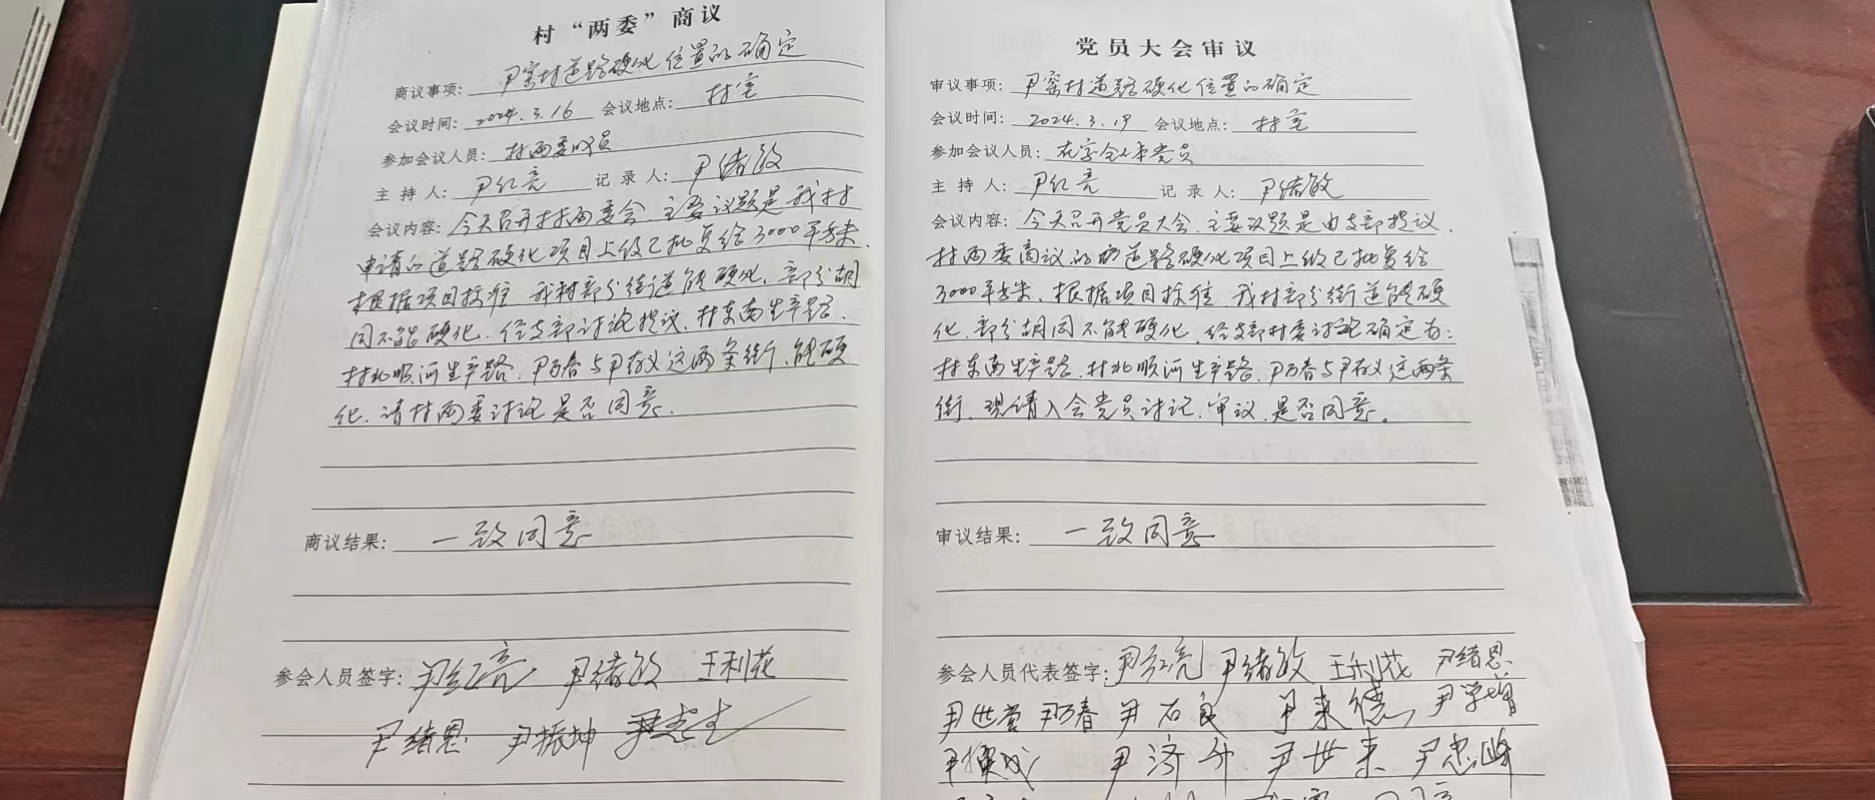 村“两委”商议
商议事项：尹窑村道路硬化位置的确定
会议时间：2024.3.16 会议地点：村室
参加会议人员：村两委成员
主持人：尹红亮 记录人：尹绪敏
会议内容：今天召开村两委会，主要议题是我村
申请的道路硬化项目上级已批复给3000平方米，
根据项目标准，我村部分街道能硬化，部分胡
同不能硬化，经支部讨论提议，村东南生产路，
村北顺河生产路，尹万春与尹存义这两条街，能硬
化，请村两委讨论是否同意。
商议结果：一致同意
参会人员签字：尹红亮 尹绪敏 王利花
尹绪恩 尹振坤
党员大会审议
审议事项：尹窑村道路硬化位置的确定
会议时间：2024.3.19 会议地点：村室
参加会议人员：在家全体党员
主持人：尹红亮 记录人：尹绪敏
会议内容：今天召开党员大会，主要议题是由支部提议，
村两委商议的道路硬化项目上级已批复给
3000平方米，根据项目标准，我村部分街道能硬
化，部分胡同不能硬化，经支部村委讨论确定为：
村东南生产路，村北顺河生产路，尹万春与尹存义这两条
街，现请入会党员讨论，审议，是否同意。
审议结果：一致同意
参会人员代表签字：尹红亮 尹绪敏 王利花 尹绪恩
尹世营 尹万春 尹石良 尹来德 尹学增
尹济升 尹世来 尹忠峰